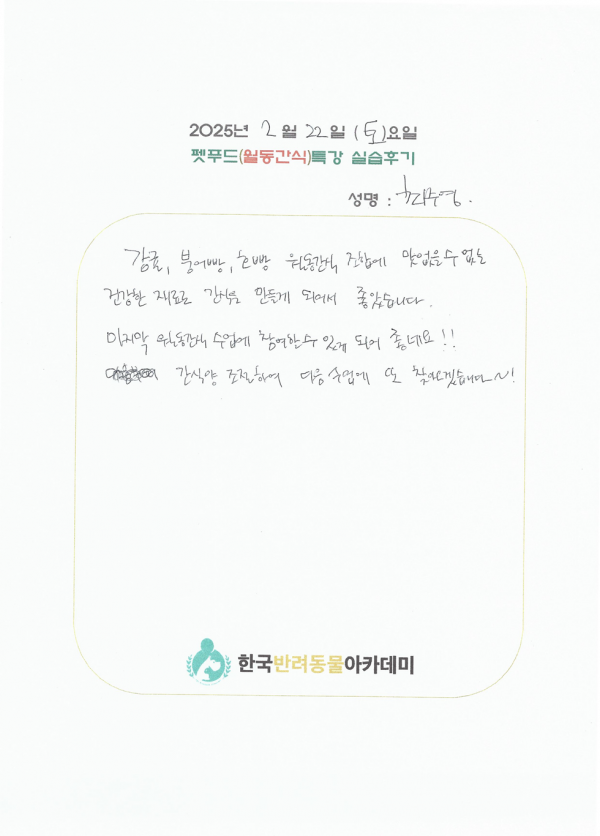 2025년 2월 22일 (토)요일
펫푸드(월동간식)특강 실습후기
성명 : 최수영.
감귤, 붕어빵, 호빵 월동간식 조합에 맛없을수 없는
건강한 재료로 간식을 만들게 되어서 좋았습니다.
마지막 월동간식 수업에 참여할수 있게 되어 좋네요!!
간식양 조절하여 다음 수업에 또 찾아오겠습니다~!
한국반려동물아카데미